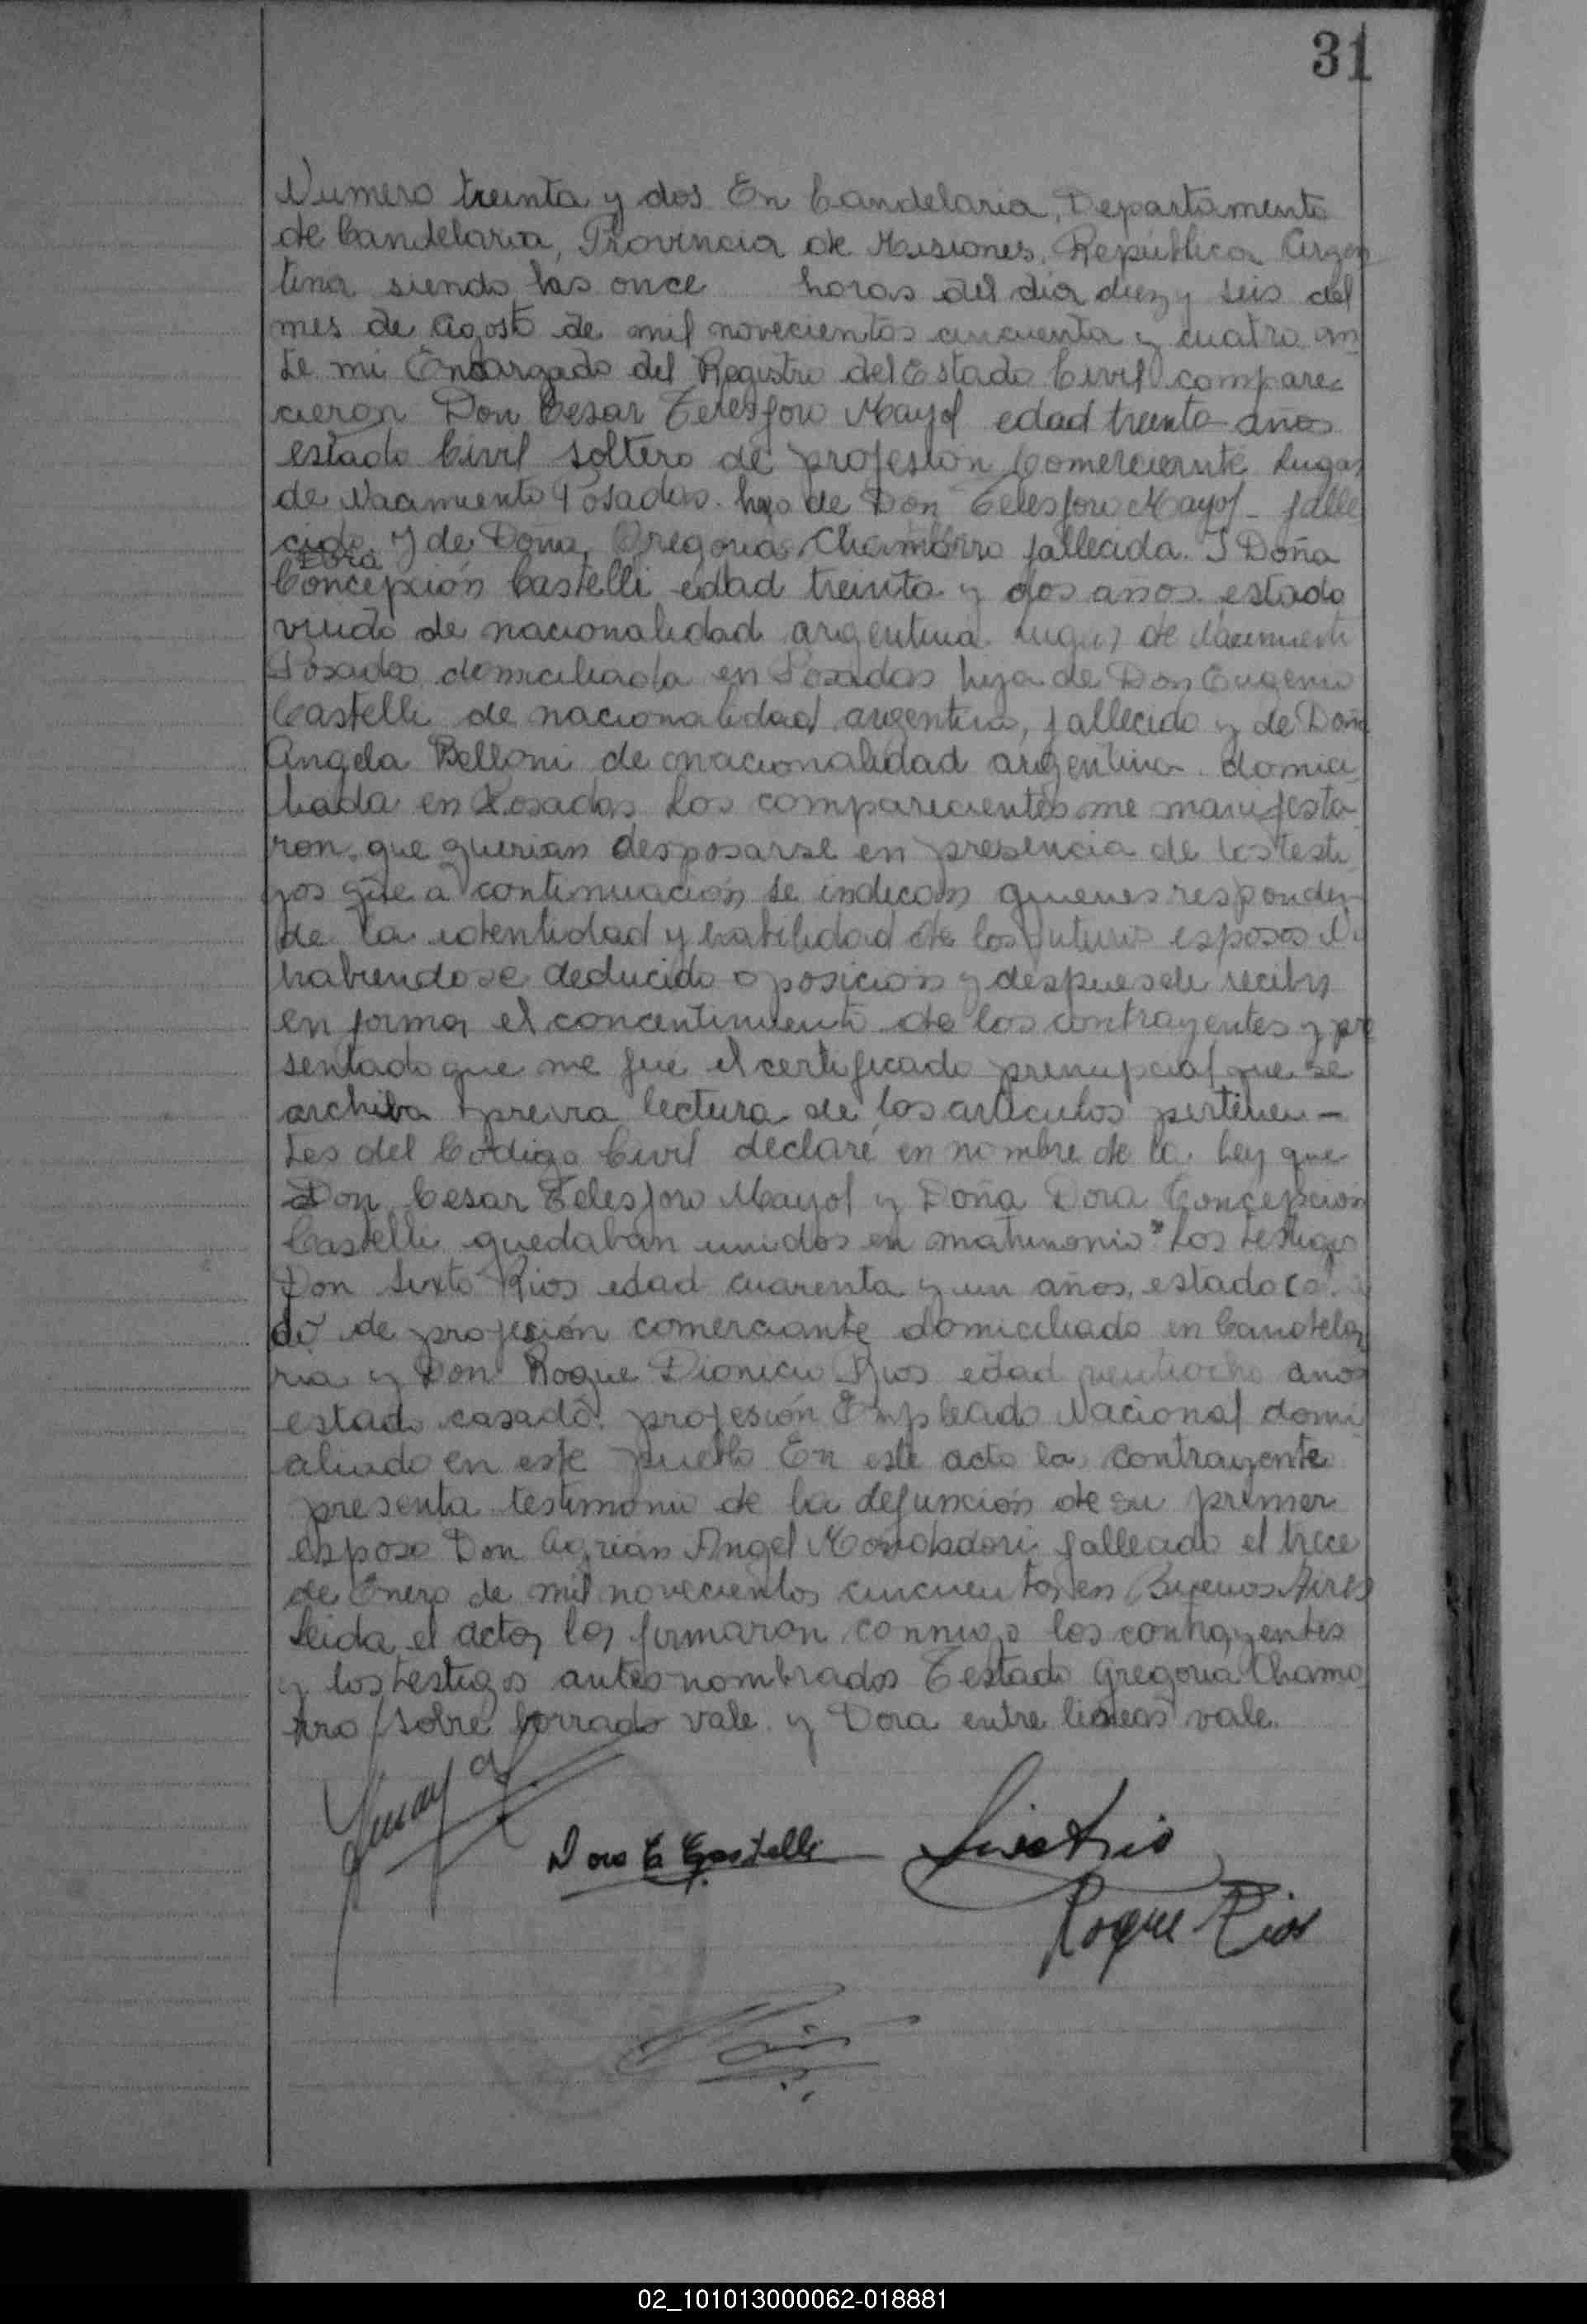 31
Numero treinta y dos En Candelaria, Departamento
de Candelaria, Provincia de Misiones, República Argen
tina siendo las once horas del dia diez y seis del
mes de Agosto de mil novecientos cincuenta y cuatro an
te mi Encargado del Registro del Estado Civil compare
cieron Don Cesar Telesforo Mayol edad treinta años
estado Civil soltero de profesion Comerciente Lugar
de Nacimiento Posadas. hijo de Don Telesforo Mayol - falle
cido y de Doña Gregoria Chamorro fallecida. Y Doña
Dora
Concepción Castelli edad treinta y dos años estado
viuda de nacionalidad argentina lugar de Nacimiento
Posadas domiciliada en Posadas hija de Don Eugenio
Castelli de nacionalidad argentino, fallecido y de Doña
Angela Belloni de nacionalidad argentina. domici
liada en Posadas Los comparecientes me manifesta
ron, que querian desposarse en presencia de los testi
gos que a continuación se indican quienes responden
de la identidad y habilidad de los futuros esposos No
habiendose deducido oposición y despues de recibir
en forma el concentimiento de los contrayentes y pre
sentado que me fué el certificado prenupcial que se
archiva previa lectura de los articulos pertinen-
tes del Codigo Civil declaré en nombre de la Ley que
Don Cesar Telesforo Mayol y Doña Dora Concepción
Castelli quedaban unidos en matrimonio" Los testigos
Don Sixto Rios edad cuarenta y un años, estado casa
do de profesión comerciante domiciliado en Candela
ria y Don Roque Dionicio Rios edad veintiocho años
estado casado. profesión Empleado Nacional domi
ciliado en este pueblo En este acto la contrayente
presenta testimonio de la defunción de su primer
esposo Don Adrián Angel fallecido el trece
de Enero de mil novecientos cincuenta, en Buenos Aires
Leida el acta, la firmaron conmigo los contrayentes
y los testigos antes nombrados Testado Gregoria Chamo
rro / sobre borrado vale y Dora entre lineas vale.
Dora C Castelli
Sixto Rios
Roque Rios
02_101013000062-018881